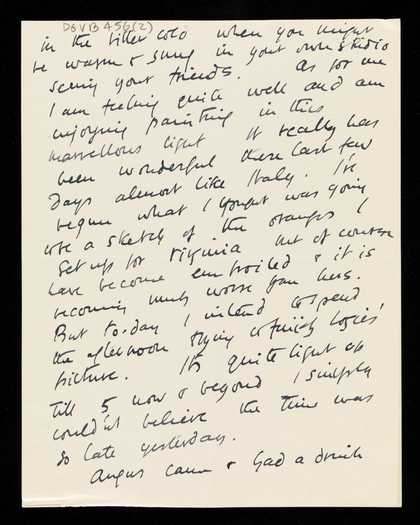 DGVB 456(2)
in the bitter cold when you might
be warm & snug in your own studio
seeing your friends. As for me
I am feeling quite well and am
enjoying painting in this
marvellous light It really has
been wonderful these last few
days almost like Italy. I've
begun what I thought was going
to be a sketch of the oranges I
set up for Virginia but of course
have become embroiled & it is
becoming much worse than hers.
But to-day I intend to spend
the afternoon trying to finish
picture. It's quite light up
till 5 now & beyond I simply
couldn't believe the time was
so late yesterday.
Angus came & had a drink